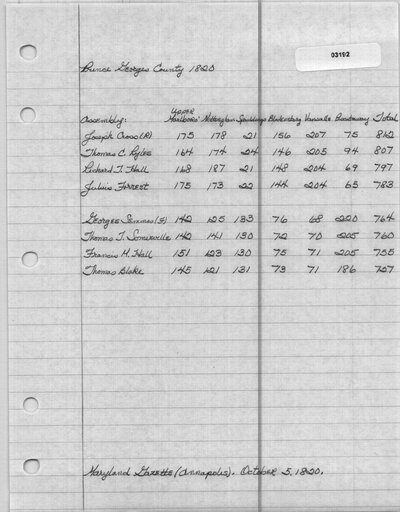 03192
Prince Georges County 1820
Assembly: Upper Marlboro' Nottingham Spauldings Bladensburg Vansville Total
Joseph Cross (R) 175 178 21 156 207 75 812
Thomas C. Lyles 164 174 24 146 205 94 807
Richard T. Hall 168 187 21 148 204 69 797
Julius Forrest 175 173 22 144 204 65 783
Georges Semmes (F) 142 125 133 76 68 220 764
Thomas T. Somerville 142 141 130 72 70 205 760
Francis M. Hall 151 123 130 75 71 205 755
Thomas Blake 145 121 131 73 71 186 727
Maryland Gazette (Annapolis), October 5, 1820.